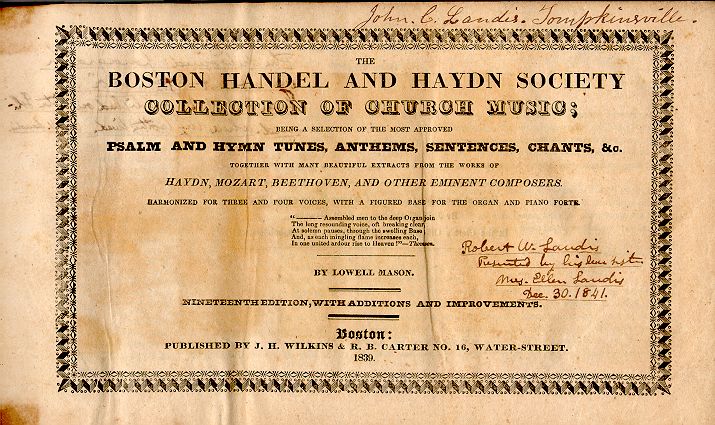 John. C. Landis. Tompkinsville.
THE
BOSTON HANDEL AND HAYDN SOCIETY
COLLECTION OF CHURCH MUSIC;
BEING A SELECTION OF THE MOST APPROVED
PSALM AND HYMN TUNES, ANTHEMS, SENTENCES, CHANTS, &c.
TOGETHER WITH MANY BEAUTIFUL EXTRACTS FROM THE WORKS OF
HAYDN, MOZART, BEETHOVEN, AND OTHER EMINENT COMPOSERS.
HARMONIZED FOR THREE AND FOUR VOICES, WITH A FIGURED BASE FOR THE ORGAN AND PIANO FORTE.
"——— Assembled men to the deep Organ join
The long resounding voice, oft breaking clear,
At solemn pauses, through the swelling Base
And, as each mingling flame increases each,
In one united ardour rise to Heaven!"—Thomson.
BY LOWELL MASON.
Robert W. Landis
Presented by his
Mrs. Ellen Landis
Dec. 30. 1841.
NINETEENTH EDITION, WITH ADDITIONS AND IMPROVEMENTS.
Boston:
PUBLISHED BY J. H. WILKINS & R. B. CARTER NO. 16, WATER-STREET.
1839.